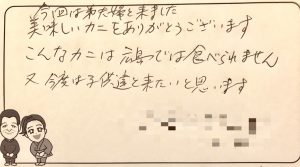 今回は弟夫婦と来ました
美味しいカニをありがとうございます
こんなカニは広島では食べられません
又 今度は子供達と来たいと思います